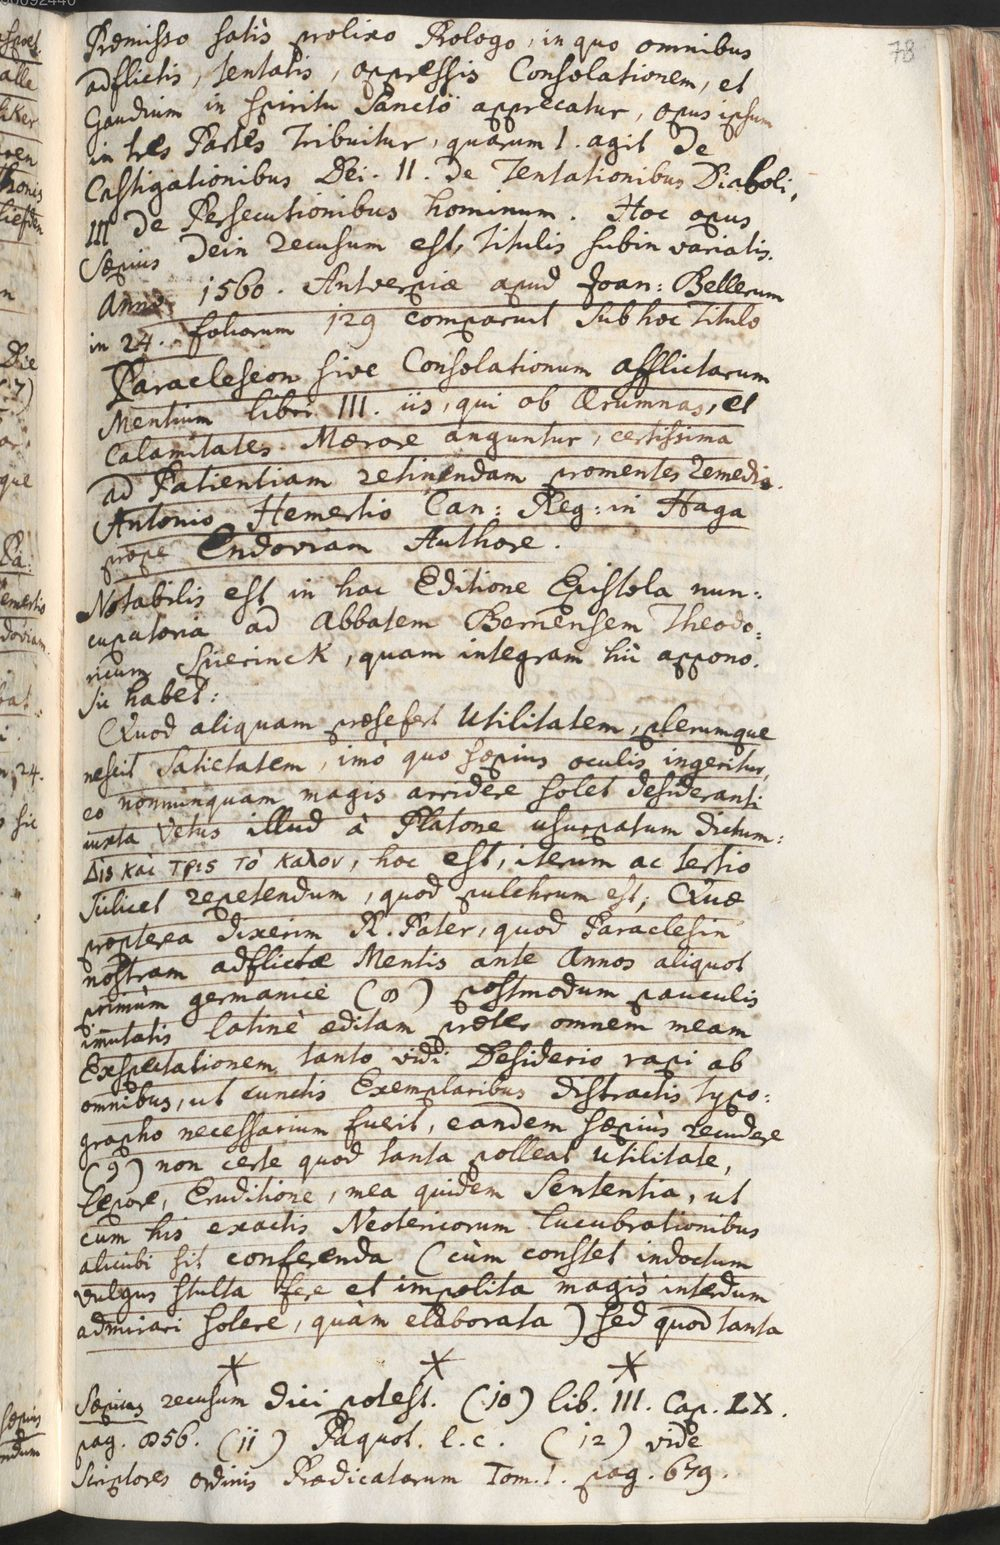 78
Præmisso satìs prolixo Prologo, in quo omnibus
adflictis, tentatis, oppressis Consolationem, et
Gaudium in Spiritu Sancto apprecatur, opus ipsum
in tres Partes Tribuitur, quarum I. agit De
Castigationibus Dei. II. De Tentationibus Diaboli,
III De Persecutionibus hominum. Hoc opus
Sæpius Dein recusum est, Titulis subin variatis.
Anno 1560. Antverpiæ apud Joan: Bellerum
in 24. foliorum 129 comparuit Sub hoc Titulo
Paracleseon sive Consolationum afflictarum
Mentium libri III. iis, qui ob Ærumnas, et
Calamitates Mærore anguntur, certissima
ad Patientiam retinendam promentes remedia.
Antonio Hemertio Can: Reg: in Haga
prope Endoviam Authore.
Notabilis est in hac Editione Epistola nun:
cupatoria ad Abbatem Bernensem Theodo:
ricum Spierinck, quam integram hìc appono.
Sic habet:
Quod aliquam præsefert Utilitatem, plerumque
nescit Satietatem, imò quo sæpius oculis ingeritur,
eo nonnunquam magis arridere solet desideranti
iuxta Vetus illud à Platone usurpatum dictum:
Δὶς καὶ τρις τὸ καλον, hoc est, iterum ac tertio
scilicet repetendum, quod pulchrum est; Quæ
propterea dixerim R. Pater, quod Paraclesin
nostram adflictæ Mentis ante Annos aliquot
primùm germanicè (8) postmodum pauculis
immutatis latinè æditam præter omnem meam
Exspectationem tanto vidi Desiderio rapi ab
omnibus, ut cunctis Exemplaribus distractis typo:
grapho necessarium fuerit, eandem sæpiùs recudere
(9) non certe quod tanta polleat Utilitate,
lepore, Eruditione, mea quidem Sententia, ut
cum his exactis Neotericorum lucubrationibus
alicubi sit conferenda (cùm constet indoctum
vulgus stulta fere et impolita magìs interdum
admirari solere, quàm elaborata) sed quod tanta
Sæpius recusum dici potest. (10) lib. III. Cap. LX.
pag. 856. (11) Paquot. l. c. (12) vide
Scriptores ordinis Prædicatorum Tom. I. pag. 679.